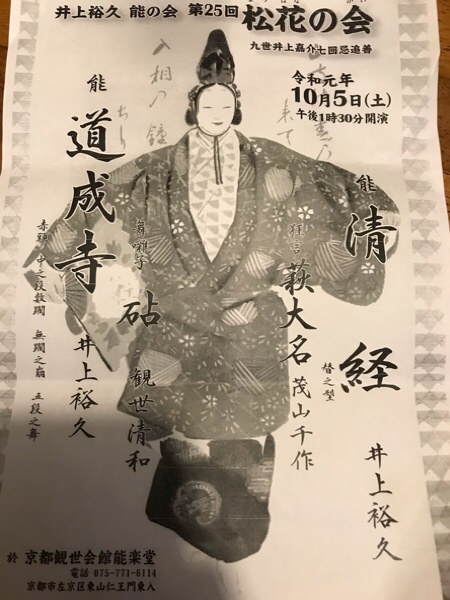 井上裕久 能の会 第25回 松花の会
九世井上嘉介七回忌追善
令和元年
10月5日(土)
午後1時30分開演
能 清経
替之型
井上裕久
狂言 萩大名 茂山千作
舞囃子 砧 観世清和
能 道成寺 井上裕久
赤頭 中之段数躙 無躙之崩 五段之舞
入相の鐘
於 京都観世会館能楽堂
電話 075-771-6114
京都市左京区東山仁王門東入